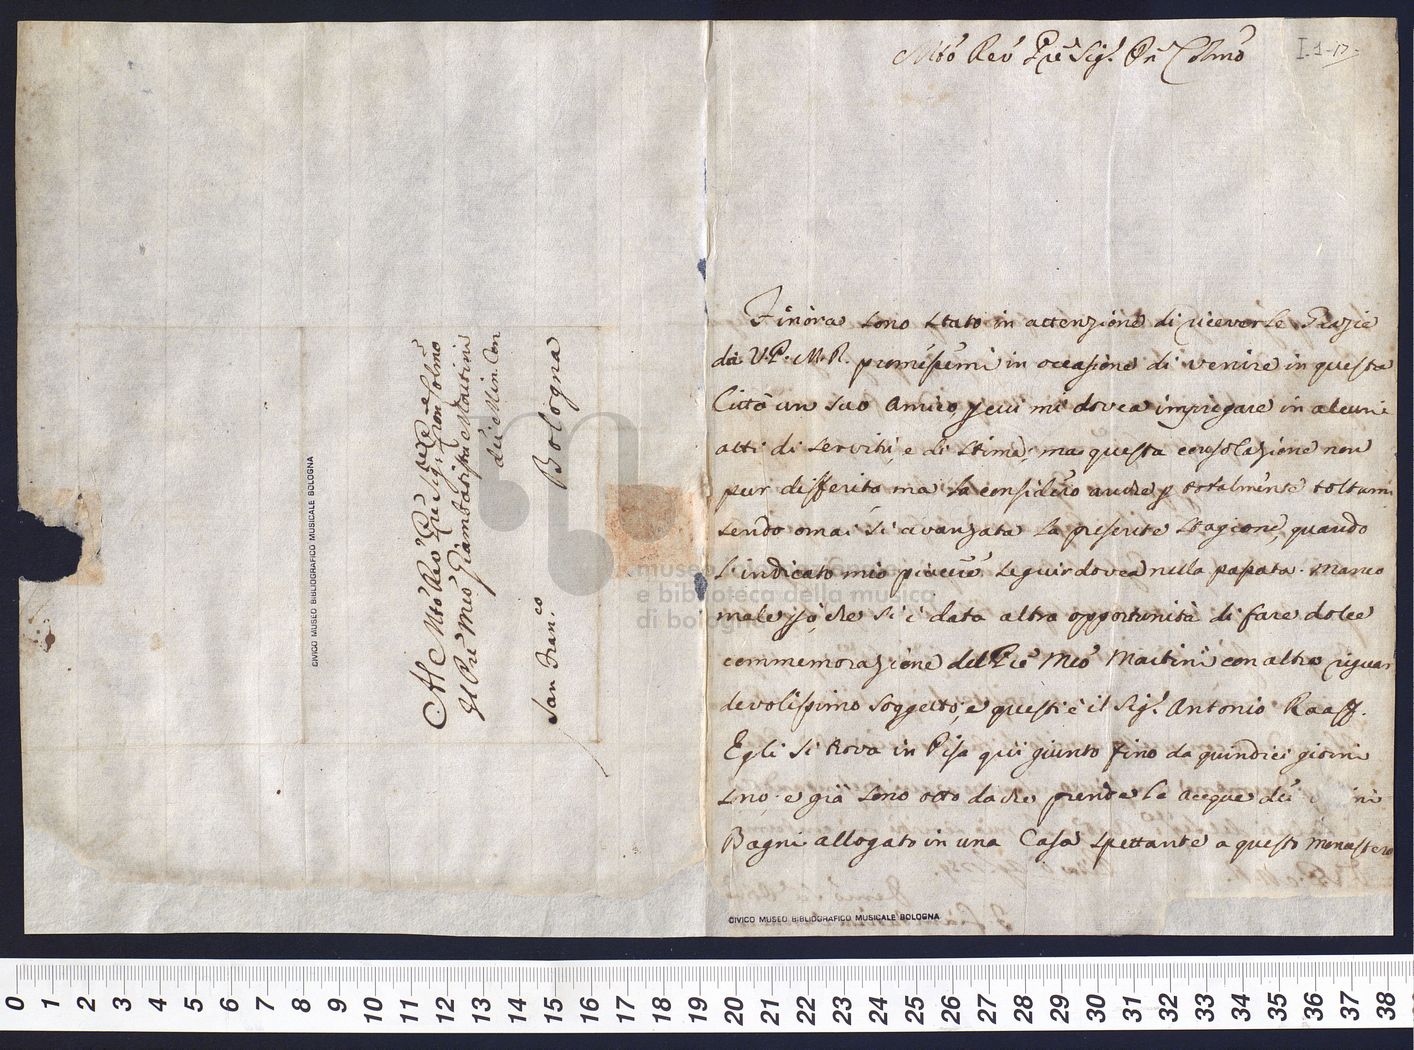 Al Mto Rev.do Pre Sig.r Pron Colmo
Il Pre Mro Giambattista Martini
dei Min. Con.
San Fran.co Bologna
CIVICO MUSEO BIBLIOGRAFICO MUSICALE BOLOGNA
I.1-17
Mto Rev.do Pre Sig.r Pn Colmo
Finora sono stato in attenzione di ricever le Grazie
da V.P.M.R. promessemi in occasione di venire in questa
Città un suo Amico per cui mi dovea impiegare in alcuni
atti di servitù, e di stima: ma questa consolazione non
pur differita ma la considero anche p totalmente toltami
sendo omai sì avanzata la presente stagione, quando
l'indicato mio piacere seguir dovea nella passata. Manco
male però, che si è data altra opportunità di fare dolce
commemorazione del Pre Mro Martini con altro riguar
devolissimo soggetto, e questi è il Sig.r Antonio Raaff.
Egli si trova in Pisa quì giunto fino da quindici giorni
sno, e già sono otto dache prende le Acque dei
Bagni allogato in una Casa spettante a questo Monastero
CIVICO MUSEO BIBLIOGRAFICO MUSICALE BOLOGNA
museo internazionale
e biblioteca della musica
di bologna
0 1 2 3 4 5 6 7 8 9 10 11 12 13 14 15 16 17 18 19 20 21 22 23 24 25 26 27 28 29 30 31 32 33 34 35 36 37 38